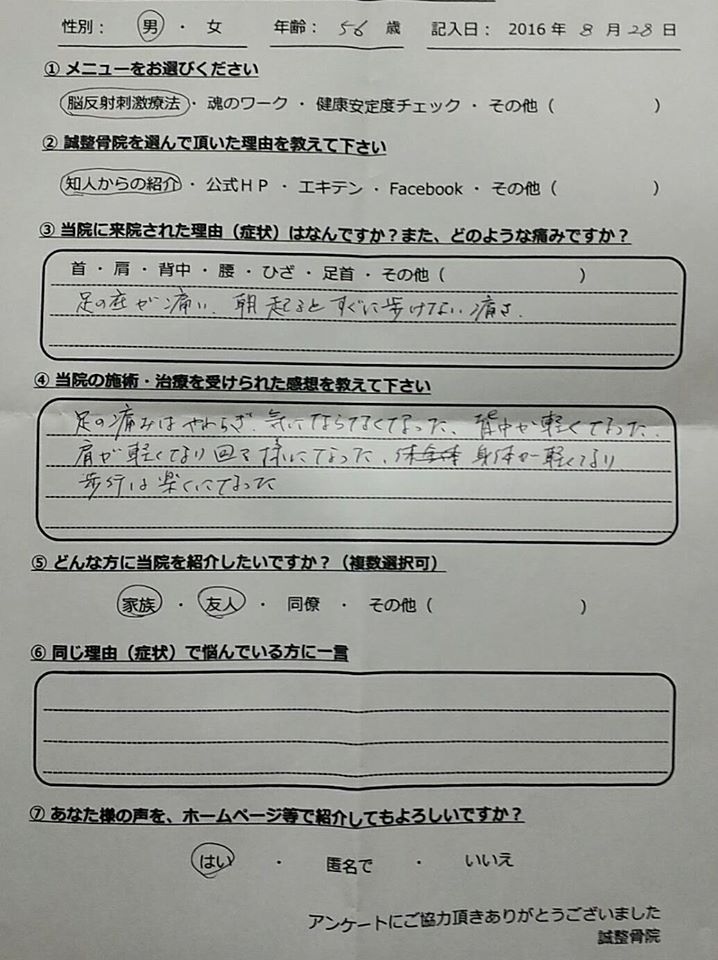 性別： 男 ・ 女 年齢： 56 歳 記入日： 2016 年 8 月 28 日
① メニューをお選びください
脳反射刺激療法 ・ 魂のワーク ・ 健康安定度チェック ・ その他（ ）
② 誠整骨院を選んで頂いた理由を教えて下さい
知人からの紹介 ・ 公式ＨＰ ・ エキテン ・ Facebook ・ その他（ ）
③ 当院に来院された理由（症状）はなんですか？また、どのような痛みですか？
首 ・ 肩 ・ 背中 ・ 腰 ・ ひざ ・ 足首 ・ その他（ ）
足の底が痛い、朝起るとすぐに歩けない痛さ.
④ 当院の施術・治療を受けられた感想を教えて下さい
足の痛みはやわらぎ、気にならなくなった、背中が軽くなった、
肩が軽くなり回る様になった、身体が軽くなり
歩行は楽くになった
⑤ どんな方に当院を紹介したいですか？（複数選択可）
家族 ・ 友人 ・ 同僚 ・ その他（ ）
⑥ 同じ理由（症状）で悩んでいる方に一言
⑦ あなた様の声を、ホームページ等で紹介してもよろしいですか？
はい ・ 匿名で ・ いいえ
アンケートにご協力頂きありがとうございました
誠整骨院